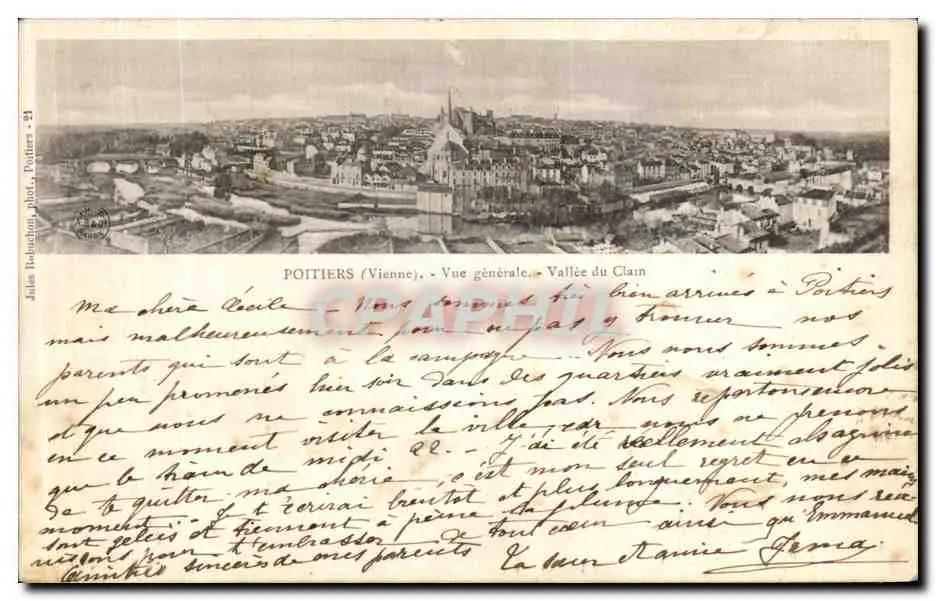 Jules Robuchon, phot., Poitiers - 21
POITIERS (Vienne). - Vue générale. - Vallée du Clain
CPAPHIL
Ma chère Cécile - Nous sommes très bien arrivés à Poitiers
mais malheureusement pour ne pas y trouver nos
parents qui sont à la campagne. Nous nous sommes
un peu promenés hier soir dans des quartiers vraiment jolis
et que nous ne connaissions pas. Nous
en ce moment visiter la ville, car nous ne prenons
que le train de midi 22. - J'ai été réellement
de te quitter ma chérie, c'est mon seul regret en ce
moment. Je t'écrirai bientôt et plus longuement, mes mains
sont gelées et tiennent à peine la plume. Nous nous
pour t'embrasser de tout cœur ainsi qu'Emmanuel
Amitiés sincères de nos parents Ta sœur et amie